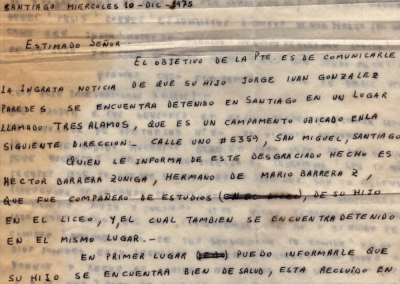 SANTIAGO MIERCOLES 10-DIC-1975
ESTIMADO SEÑOR
EL OBJETIVO DE LA PTE. ES DE COMUNICARLE
LA INGRATA NOTICIA DE QUE SU HIJO JORGE IVAN GONZALEZ
PAREDES SE ENCUENTRA DETENIDO EN SANTIAGO EN UN LUGAR
LLAMADO TRES ALAMOS, QUE ES UN CAMPAMENTO UBICADO EN LA
SIGUIENTE DIRECCION:- CALLE UNO #5359, SAN MIGUEL, SANTIAGO
QUIEN LE INFORMA DE ESTE DESGRACIADO HECHO ES
HECTOR BARRERA ZUÑIGA, HERMANO DE MARIO BARRERA Z,
QUE FUE COMPAÑERO DE ESTUDIOS ( ), DE SU HIJO
EN EL LICEO, Y EL CUAL TAMBIEN SE ENCUENTRA DETENIDO
EN EL MISMO LUGAR.-
EN PRIMER LUGAR ( ) PUEDO INFORMARLE QUE
SU HIJO SE ENCUENTRA BIEN DE SALUD, ESTA RECLUIDO EN